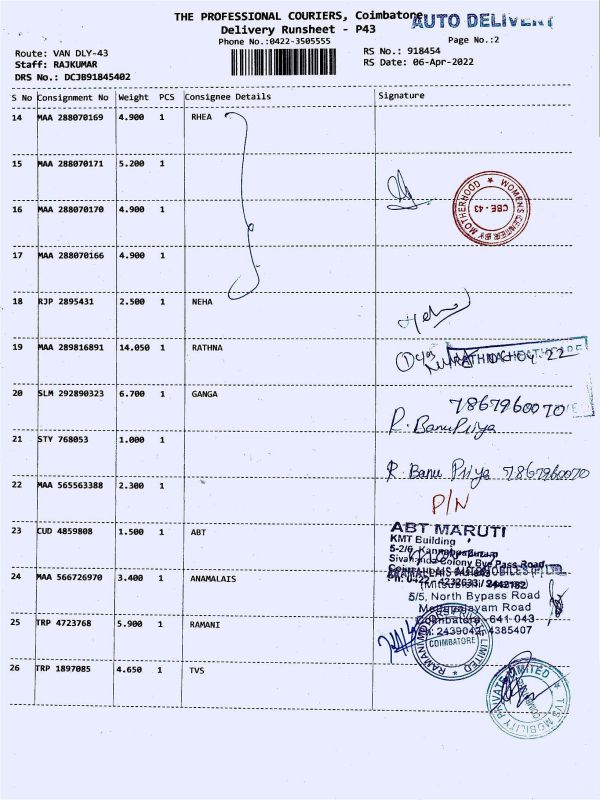 THE PROFESSIONAL COURIERS, Coimbatore
AUTO DELIVERY
Delivery Runsheet - P43
Phone No.:0422-3505555
Page No.:2
Route: VAN DLY-43
RS No.: 918454
Staff: RAJKUMAR
RS Date: 06-Apr-2022
DRS No.: DCJB91845402
S No Consignment No Weight PCS Consignee Details Signature
14 MAA 288070169 4.900 1 RHEA
15 MAA 288070171 5.200 1
WOMENS CENTER BY MOTHERHOOD
CBE - 43
16 MAA 288070170 4.900 1
17 MAA 288070166 4.900 1
18 RJP 2895431 2.500 1 NEHA
19 MAA 289816891 14.050 1 RATHNA
20 SLM 292890323 6.700 1 GANGA
7867960070
R. Banu Priya
21 STY 768053 1.000 1
R. Banu Priya 7867960070
22 MAA 565563388 2.300 1
P/N
23 CUD 4859808 1.500 1 ABT
ABT MARUTI
KMT Building
Sivananda Colony Bye Pass Road
24 MAA 566726970 3.400 1 ANAMALAIS
5/5, North Bypass Road
Coimbatore - 641 043
25 TRP 4723768 5.900 1 RAMANI
Ph: 2439042, 4385407
COIMBATORE
26 TRP 1897085 4.650 1 TVS
TVS MOBILITY PRIVATE LIMITED